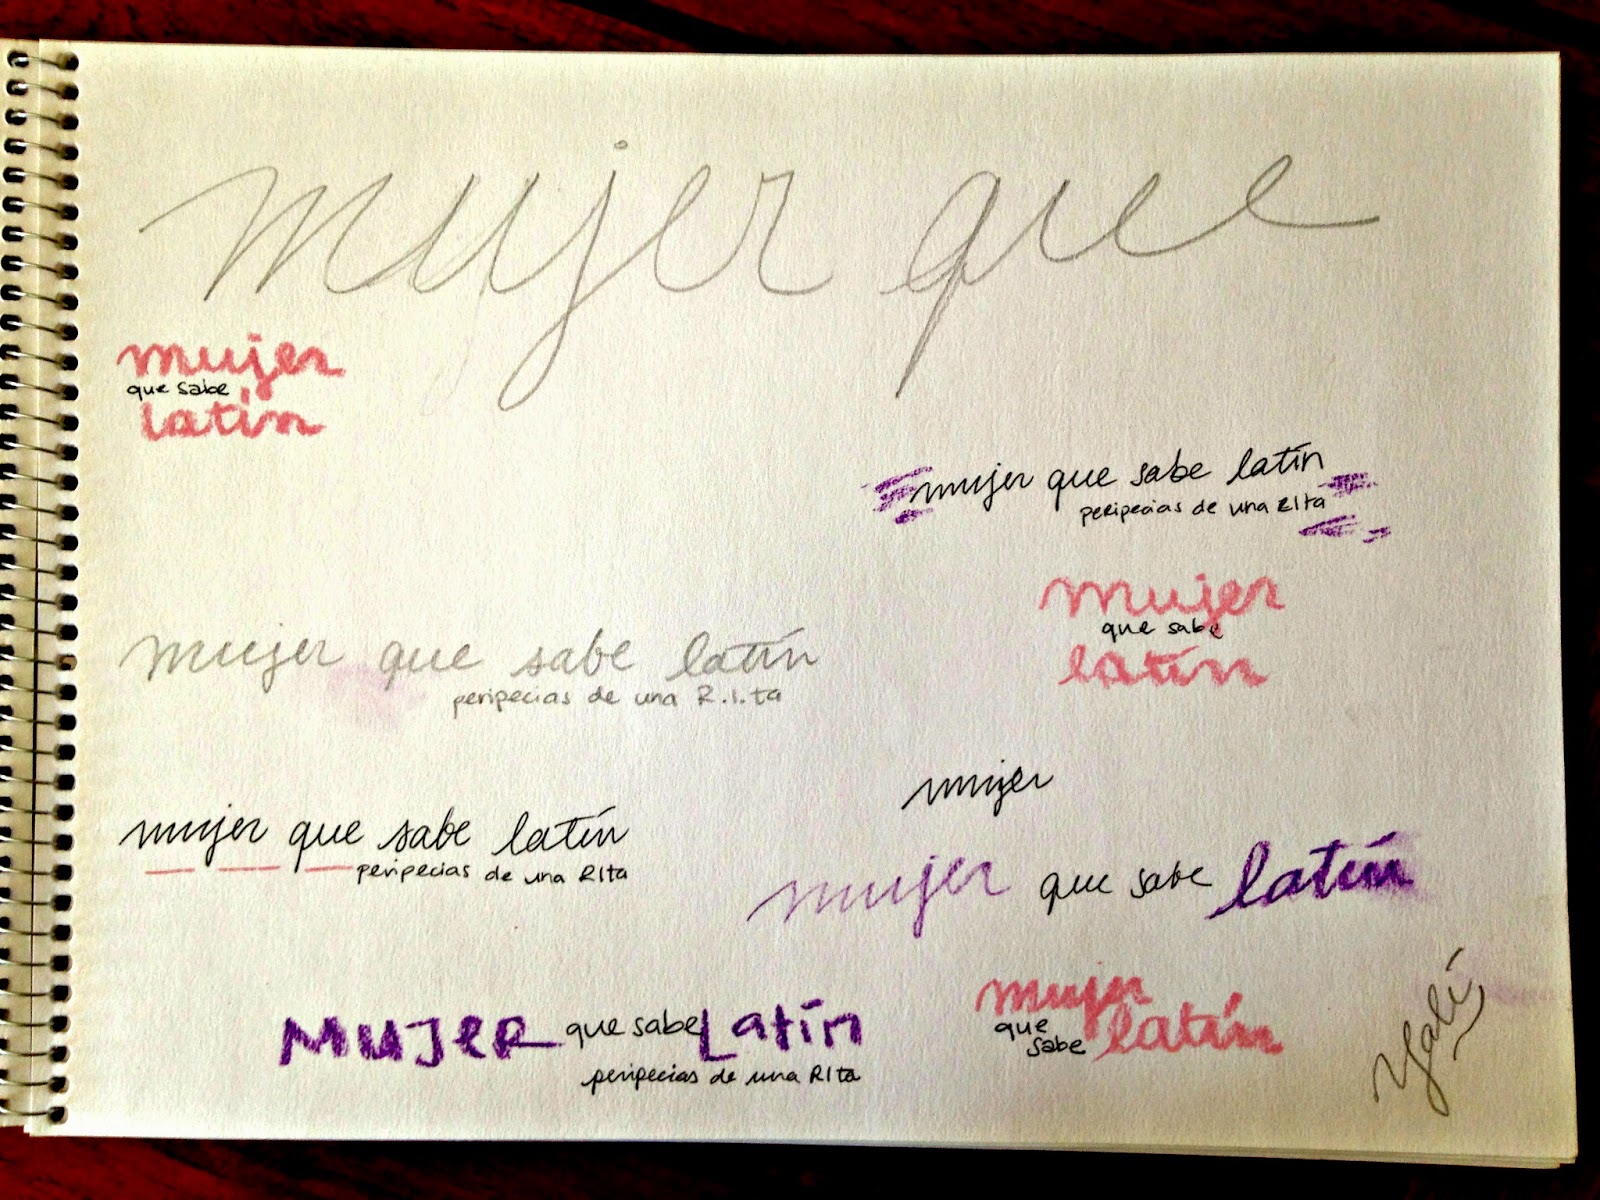 mujer que
mujer
que sabe
latín
mujer que sabe latín
peripecias de una RIta
mujer
que sabe
latín
mujer que sabe latín
peripecias de una R.I.ta
mujer
mujer que sabe latín
peripecias de una RIta
mujer que sabe latín
mujer
que
sabe
latín
MUJER que sabe Latín
peripecias de una RIta
Yalí